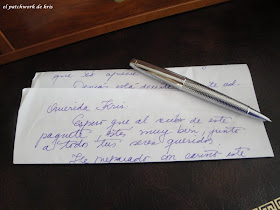 el patchwork de kris
que se
Querida Kris:
Espero que al recibo de este
paquete, estés muy bien, junto
a todos tus seres queridos.
He preparado con cariño este